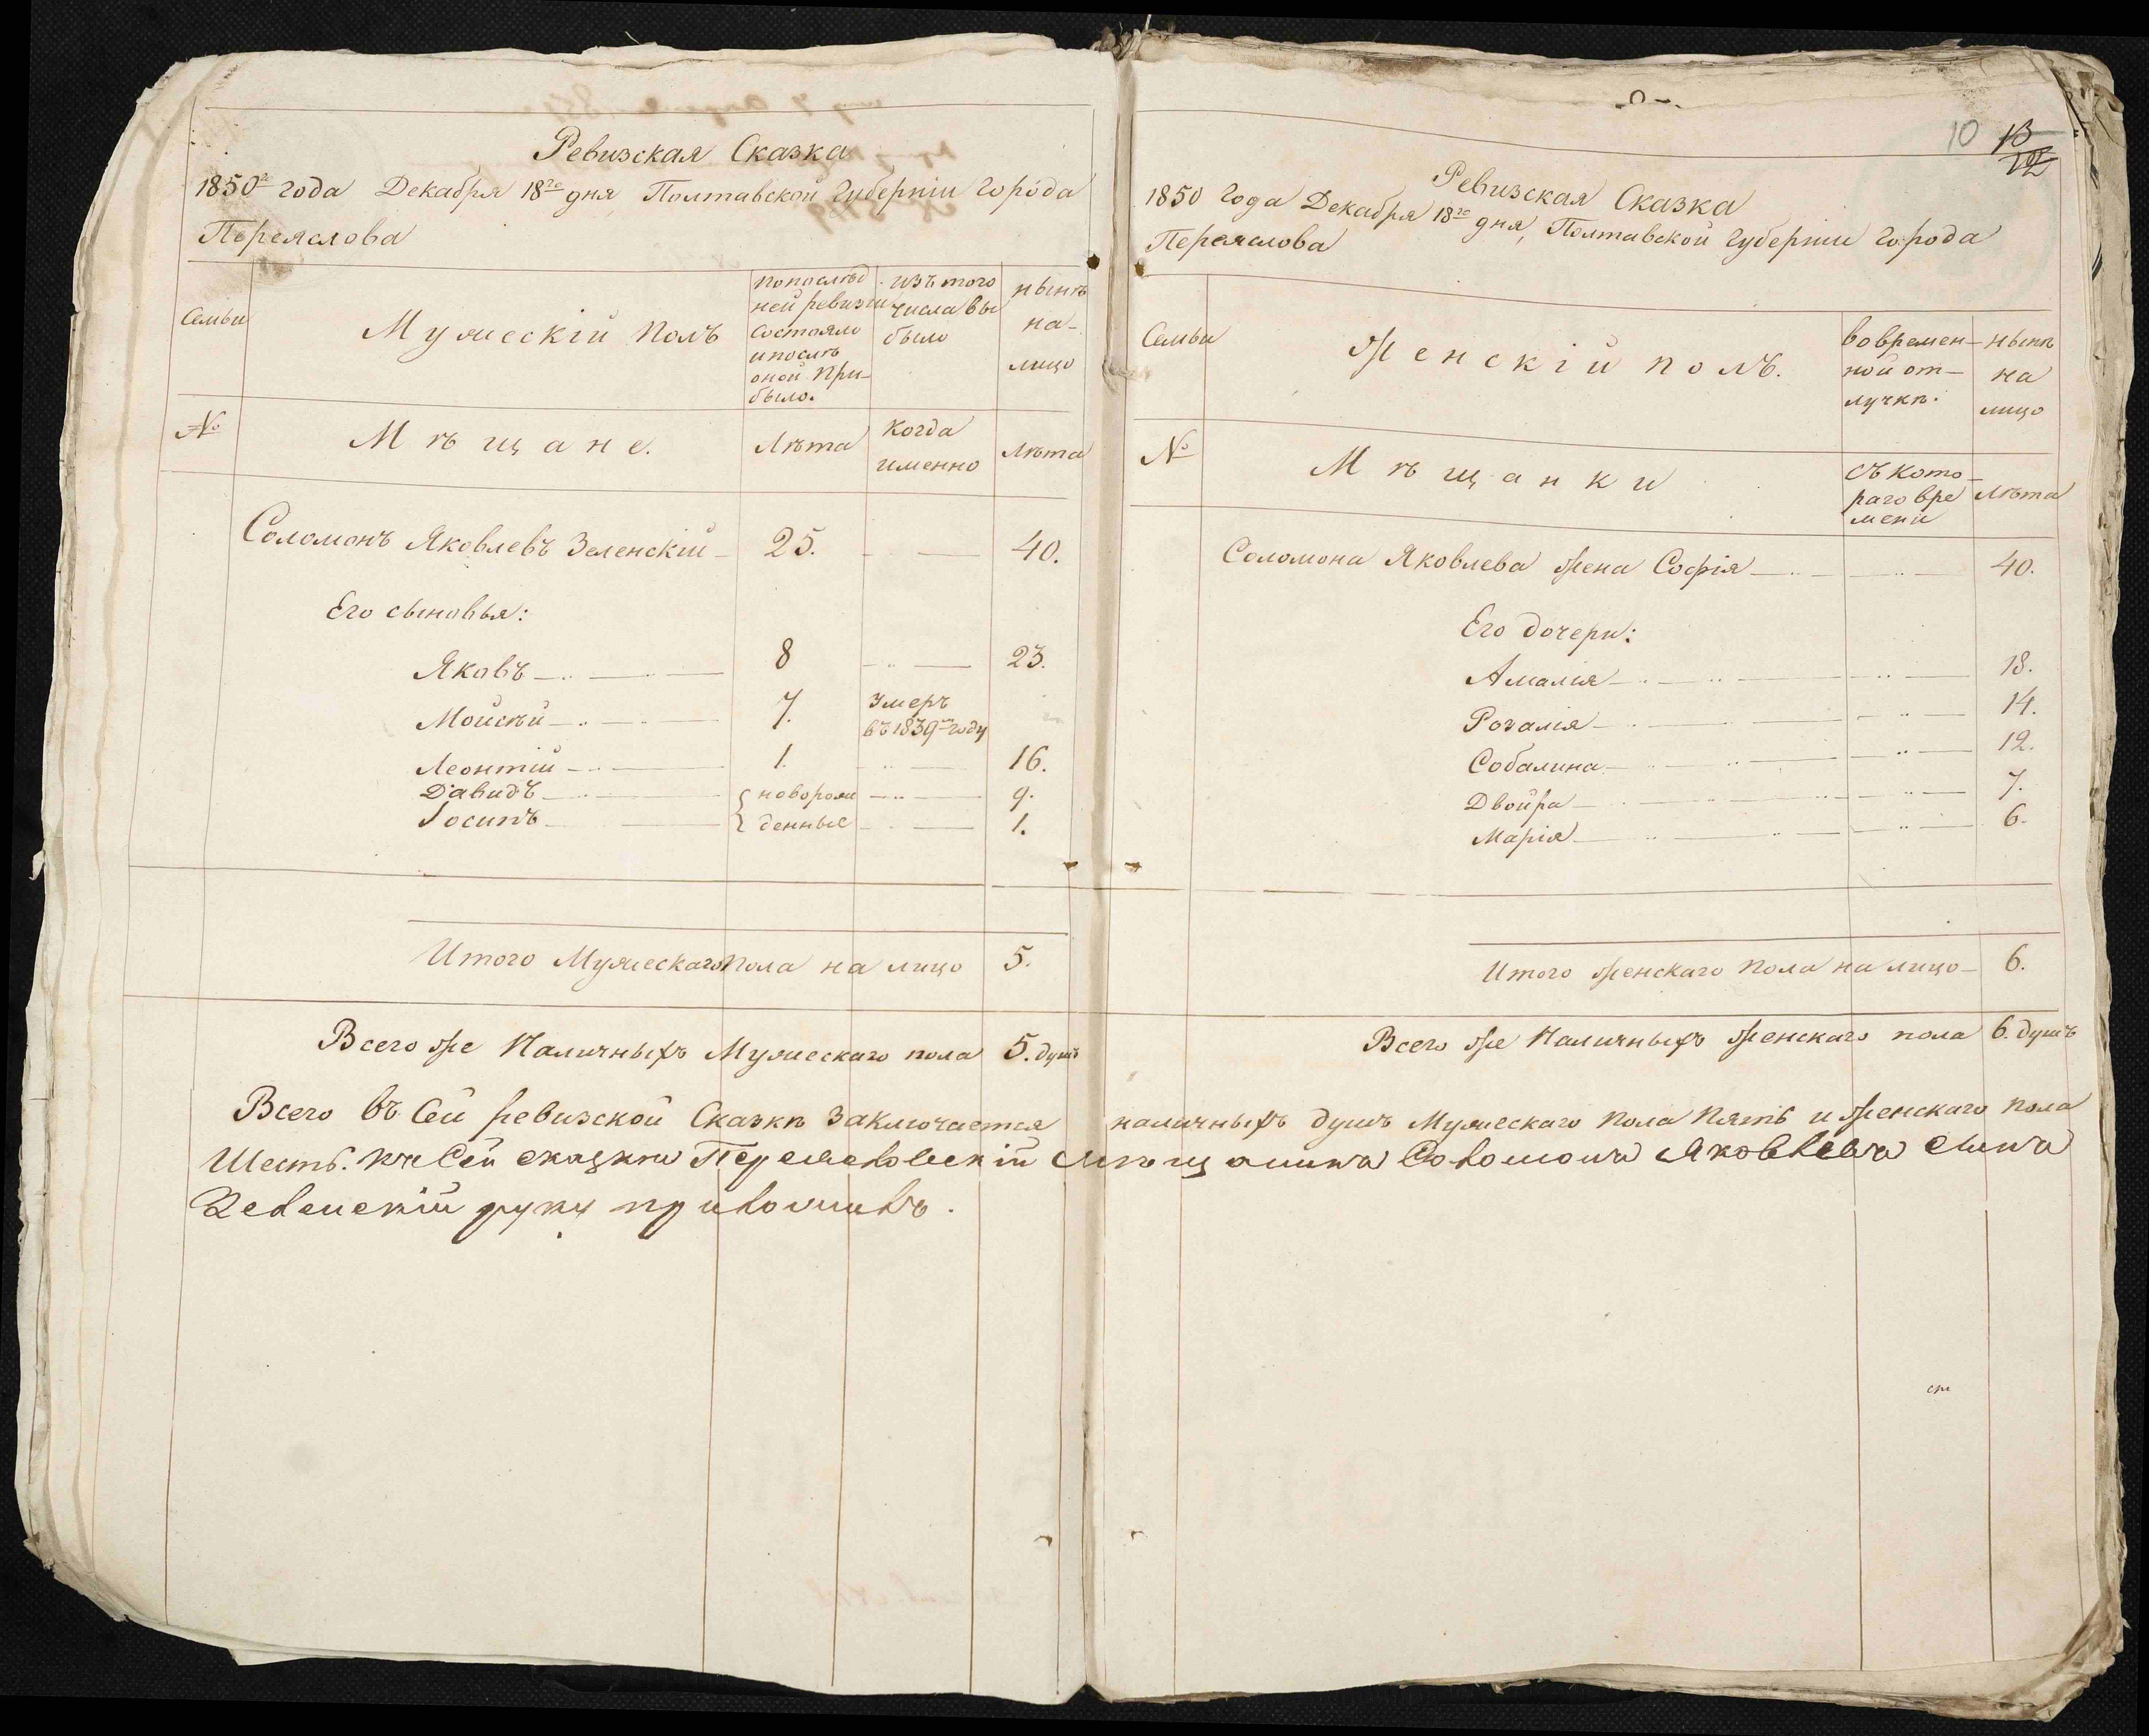 Ревизская Сказка
1850го года Декабря 18го дня, Полтавской Губерніи Города
Переяслова
Семьи
Мужескій Полъ
по послѣд
ней ревизіи
состояло
и послѣ
оной при-
было.
изъ того
числа вы
было
нынѣ
на-
лицо
№
Мѣщане.
Лѣта
когда
именно
Лѣта
Соломонъ Яковлевъ Зеленскій 25. 40.
Его сыновья:
Яковъ 8 23.
Мойсѣй 7. Умеръ
въ 1839м году
Леонтій 1. 16.
Давидъ новорож 9.
Іосипъ денные 1.
Итого Мужескаго пола на лицо 5.
Всего же Наличныхъ Мужескаго пола 5. душъ
10 13
Ревизская Сказка
1850 года Декабря 18го дня, Полтавской Губерніи Города
Переяслова
Семьи
Женскій полъ.
во времен-
ной от-
лучкѣ.
нынѣ
на
лицо
№
Мѣщанки
съ кото-
раго вре
мени
Лѣта
Соломона Яковлева жена Софія 40.
Его дочери:
Амалія 18.
Розалія 14.
Собалина 12.
Двойра 7.
Марія 6.
Итого женскаго пола на лицо 6.
Всего же Наличныхъ женскаго пола 6. душъ
Всего въ Сей ревизской Сказкѣ заключается наличныхъ душъ Мужескаго пола пять и женскаго пола
Шесть. Къ Сей сказки Переясловскій мѣщанинъ Соломонъ Яковлевъ сынъ
Зеленскій руку приложилъ.